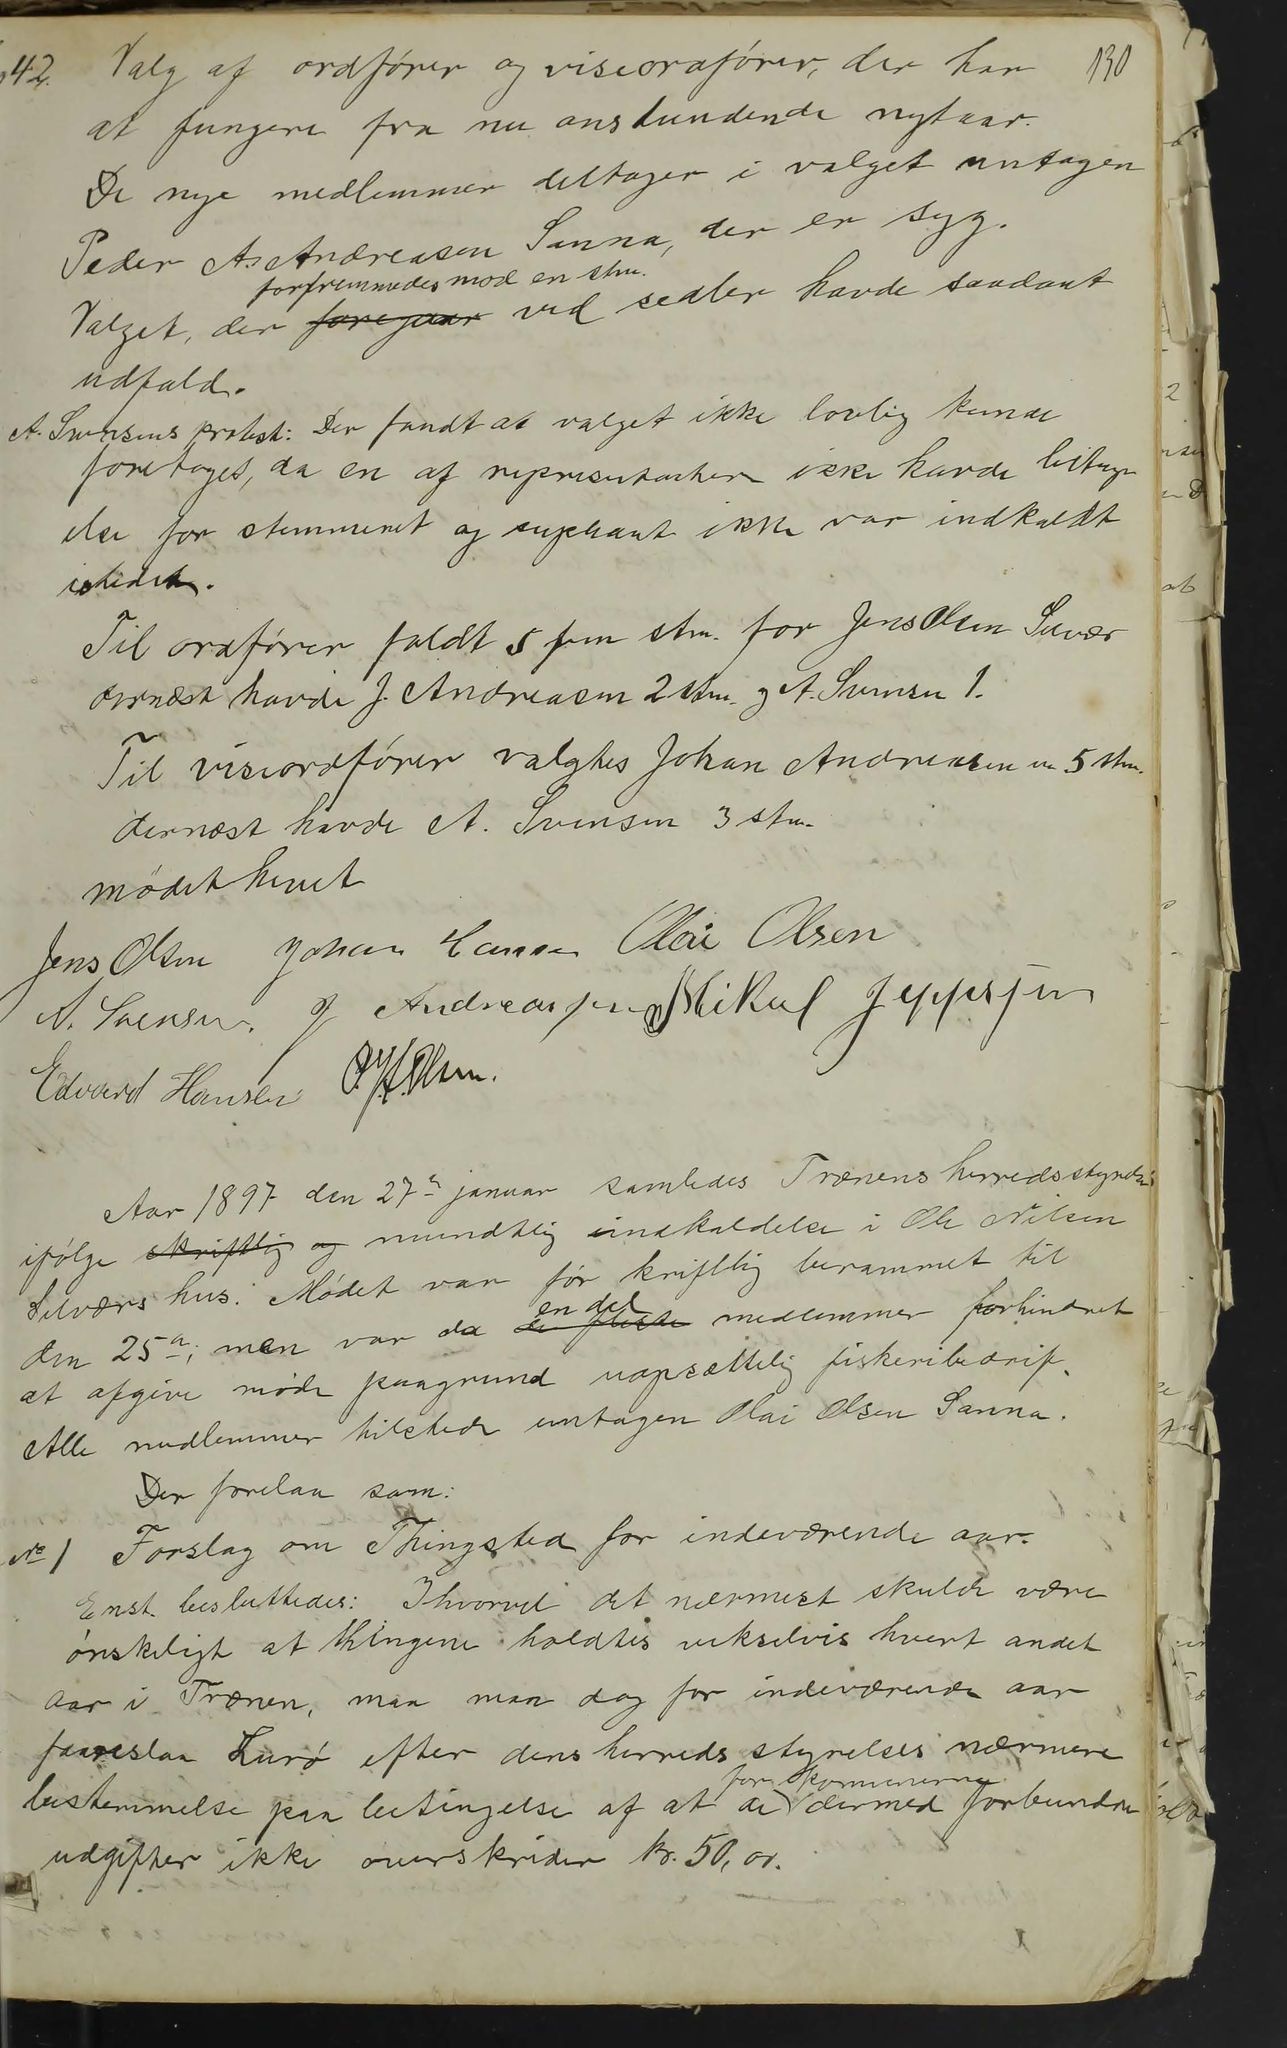 42. Valg af ordfører og viseordfører, der har 130
at fungere fra nu anstundende nytaar.
De nye medlemmer deltager i valget untagen
Peder A. Andreasen Sanna, der er syg.
forfremmedes mod en stm.
Valget, der foregaar ved sedler havde saadant
udfald.
A. Svensens protest: Der fandt at valget ikke lovlig kunde
foretages, da en af representanterne ikke havde betagelse
for stemmeret og supleant ikke var indkaldt
istedet.
Til ordfører faldt 5 fem stm. for Jens Olsen Selvær
dernæst havde J. Andreasen 2 stm. og A. Svensen 1.
Til viseordfører valgtes Johan Andreasen m 5 stm.
dernæst havde A. Svensen 3 stm.
mødet hevet
Jens Olsen Johan Hansen Olai Olsen
A. Svensen. J Andreassen Mikal Jeppesen
Edvard Hansen Olsen.
Aar 1897 den 27de januar samledes Trænens herredsstyrelse
ifølge skriftlig og mundtlig indkaldelse i Ole Nilsen
Selværs hus. Mødet var før skriftlig berammet til
en del
den 25de; men var da de fleste medlemmer forhindret
at afgive møde paagrund uopsættelig fiskeribedrift.
Alle medlemmer tilstede untagen Olai Olsen Sanna.
Der forelaa som:
No 1 Forslag om Thingsted for indeværende aar.
Enst. besluttedes: Ihvorvel det nærmest skulde være
ønskeligt at thingene holdtes vekselvis hvert andet
aar i Trænen, maa man dog for indeværende aar
foareslaa Lurø efter dens herreds styrelses nærmere
for kommunerne
bestemmelse paa betingelse af at de dermed forbundne
udgifter ikke overskrider kr. 50, or.